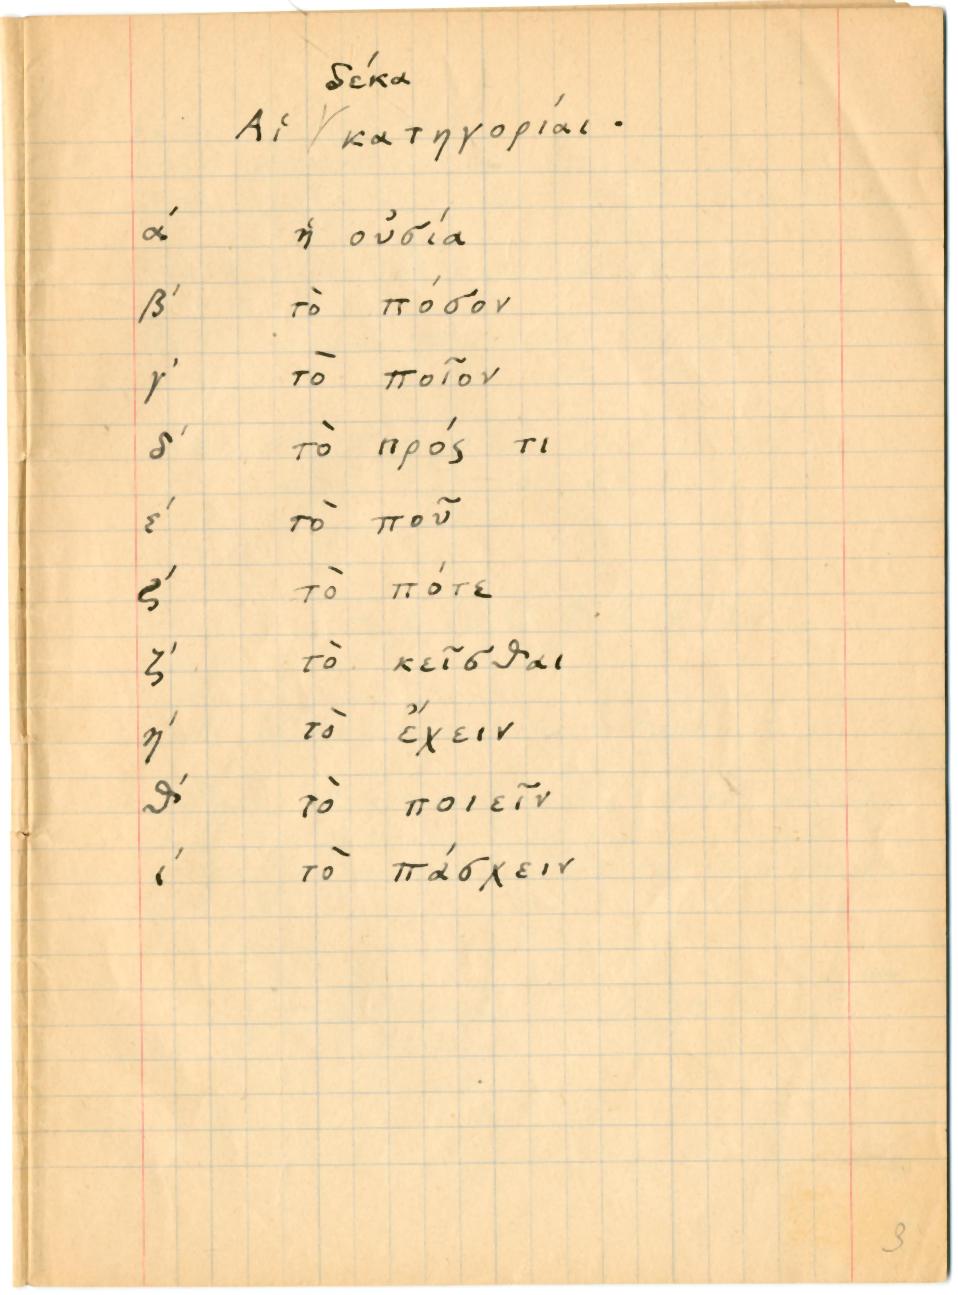 δέκα
Αἱ κατηγορίαι ·
α´ ἡ οὐσία
β´ τὸ πόσον
γ´ τὸ ποῖον
δ´ τὸ πρός τι
ε´ τὸ ποῦ
ς´ τὸ πότε
ζ´ τὸ κεῖσθαι
η´ τὸ ἔχειν
θ´ τὸ ποιεῖν
ι´ τὸ πάσχειν
3